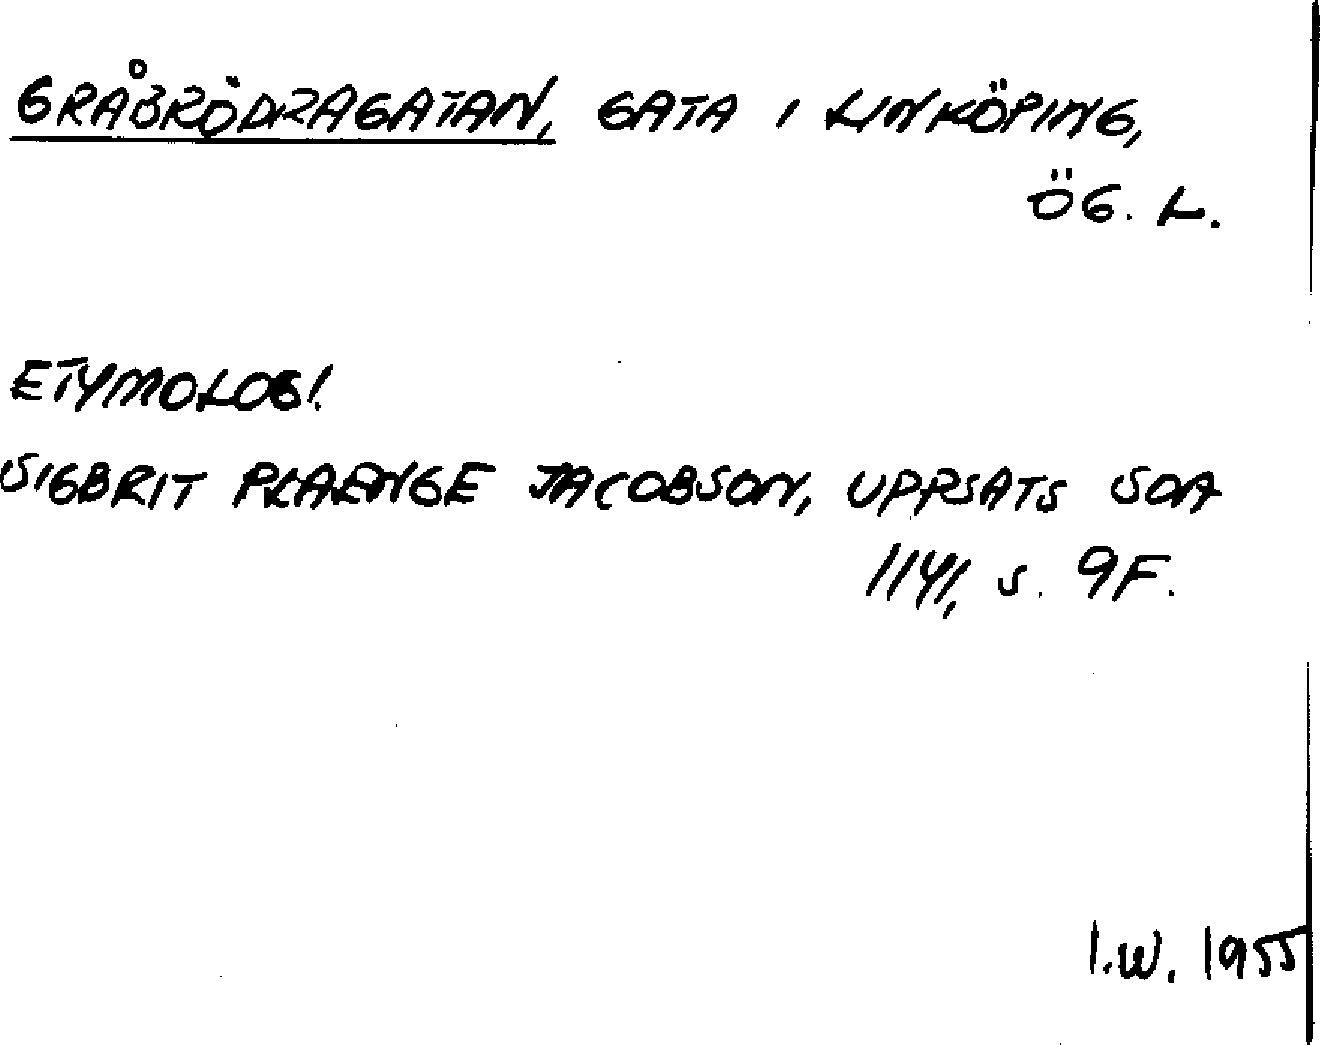 GRÅBRÖDRAGATAN, GATA I LINKÖPING,
ÖG. L.
ETYMOLOGI.
SIGBRIT PLAENGE JACOBSON, UPPSATS SOA
1141, S. 9F.
I.W. 1955